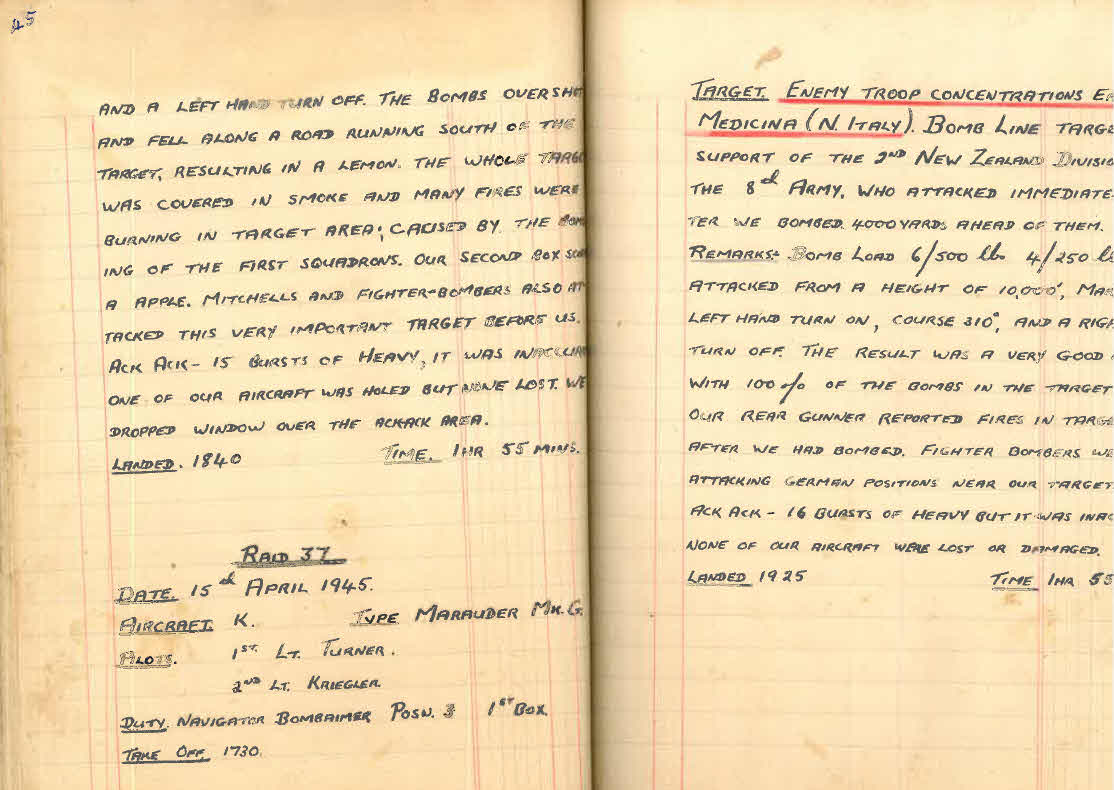 45
AND A LEFT HAND TURN OFF. THE BOMBS OVERSHO
AND FELL ALONG A ROAD RUNNING SOUTH OF THE
TARGET, RESULTING IN A LEMON. THE WHOLE TARGE
WAS COVERED IN SMOKE AND MANY FIRES WERE
BURNING IN TARGET AREA; CAUSED BY THE BOMB
ING OF THE FIRST SQUADRONS. OUR SECOND BOX SCOR
A APPLE. MITCHELLS AND FIGHTER-BOMBERS ALSO AT
TACKED THIS VERY IMPORTANT TARGET BEFORE US.
ACK ACK - 15 BURSTS OF HEAVY, IT WAS INACCURA
ONE OF OUR AIRCRAFT WAS HOLED BUT NONE LOST. WE
DROPPED WINDOW OVER THE ACK-ACK AREA.
LANDED. 1840 TIME. 1HR 55 MINS.
RAID 37
DATE. 15th APRIL 1945.
AIRCRAFT. K. TYPE MARAUDER MK. G.
PILOTS. 1ST. LT. TURNER.
2ND LT. KRIEGLER.
DUTY. NAVIGATOR BOMBAIMER POSN. 3 1ST BOX.
TAKE OFF. 1730.
TARGET. ENEMY TROOP CONCENTRATIONS
MEDICINA (N. ITALY). BOMB LINE TARGE
SUPPORT OF THE 2ND NEW ZEALAND DIVISIO
THE 8th ARMY, WHO ATTACKED IMMEDIATE
TER WE BOMBED. 4000 YARDS AHEAD OF THEM.
REMARKS:- BOMB LOAD 6/500 lb 4/250 lb
ATTACKED FROM A HEIGHT OF 10,000', MA
LEFT HAND TURN ON, COURSE 310°, AND A RIG
TURN OFF. THE RESULT WAS A VERY GOOD
WITH 100 o/o OF THE BOMBS IN THE TARGET
OUR REAR GUNNER REPORTED FIRES IN TARGE
AFTER WE HAD BOMBED. FIGHTER BOMBERS WE
ATTACKING GERMAN POSITIONS NEAR OUR TARGET
ACK ACK - 16 BURSTS OF HEAVY BUT IT WAS INAC
NONE OF OUR AIRCRAFT WERE LOST OR DAMAGED.
LANDED 1925 TIME 1HR 55